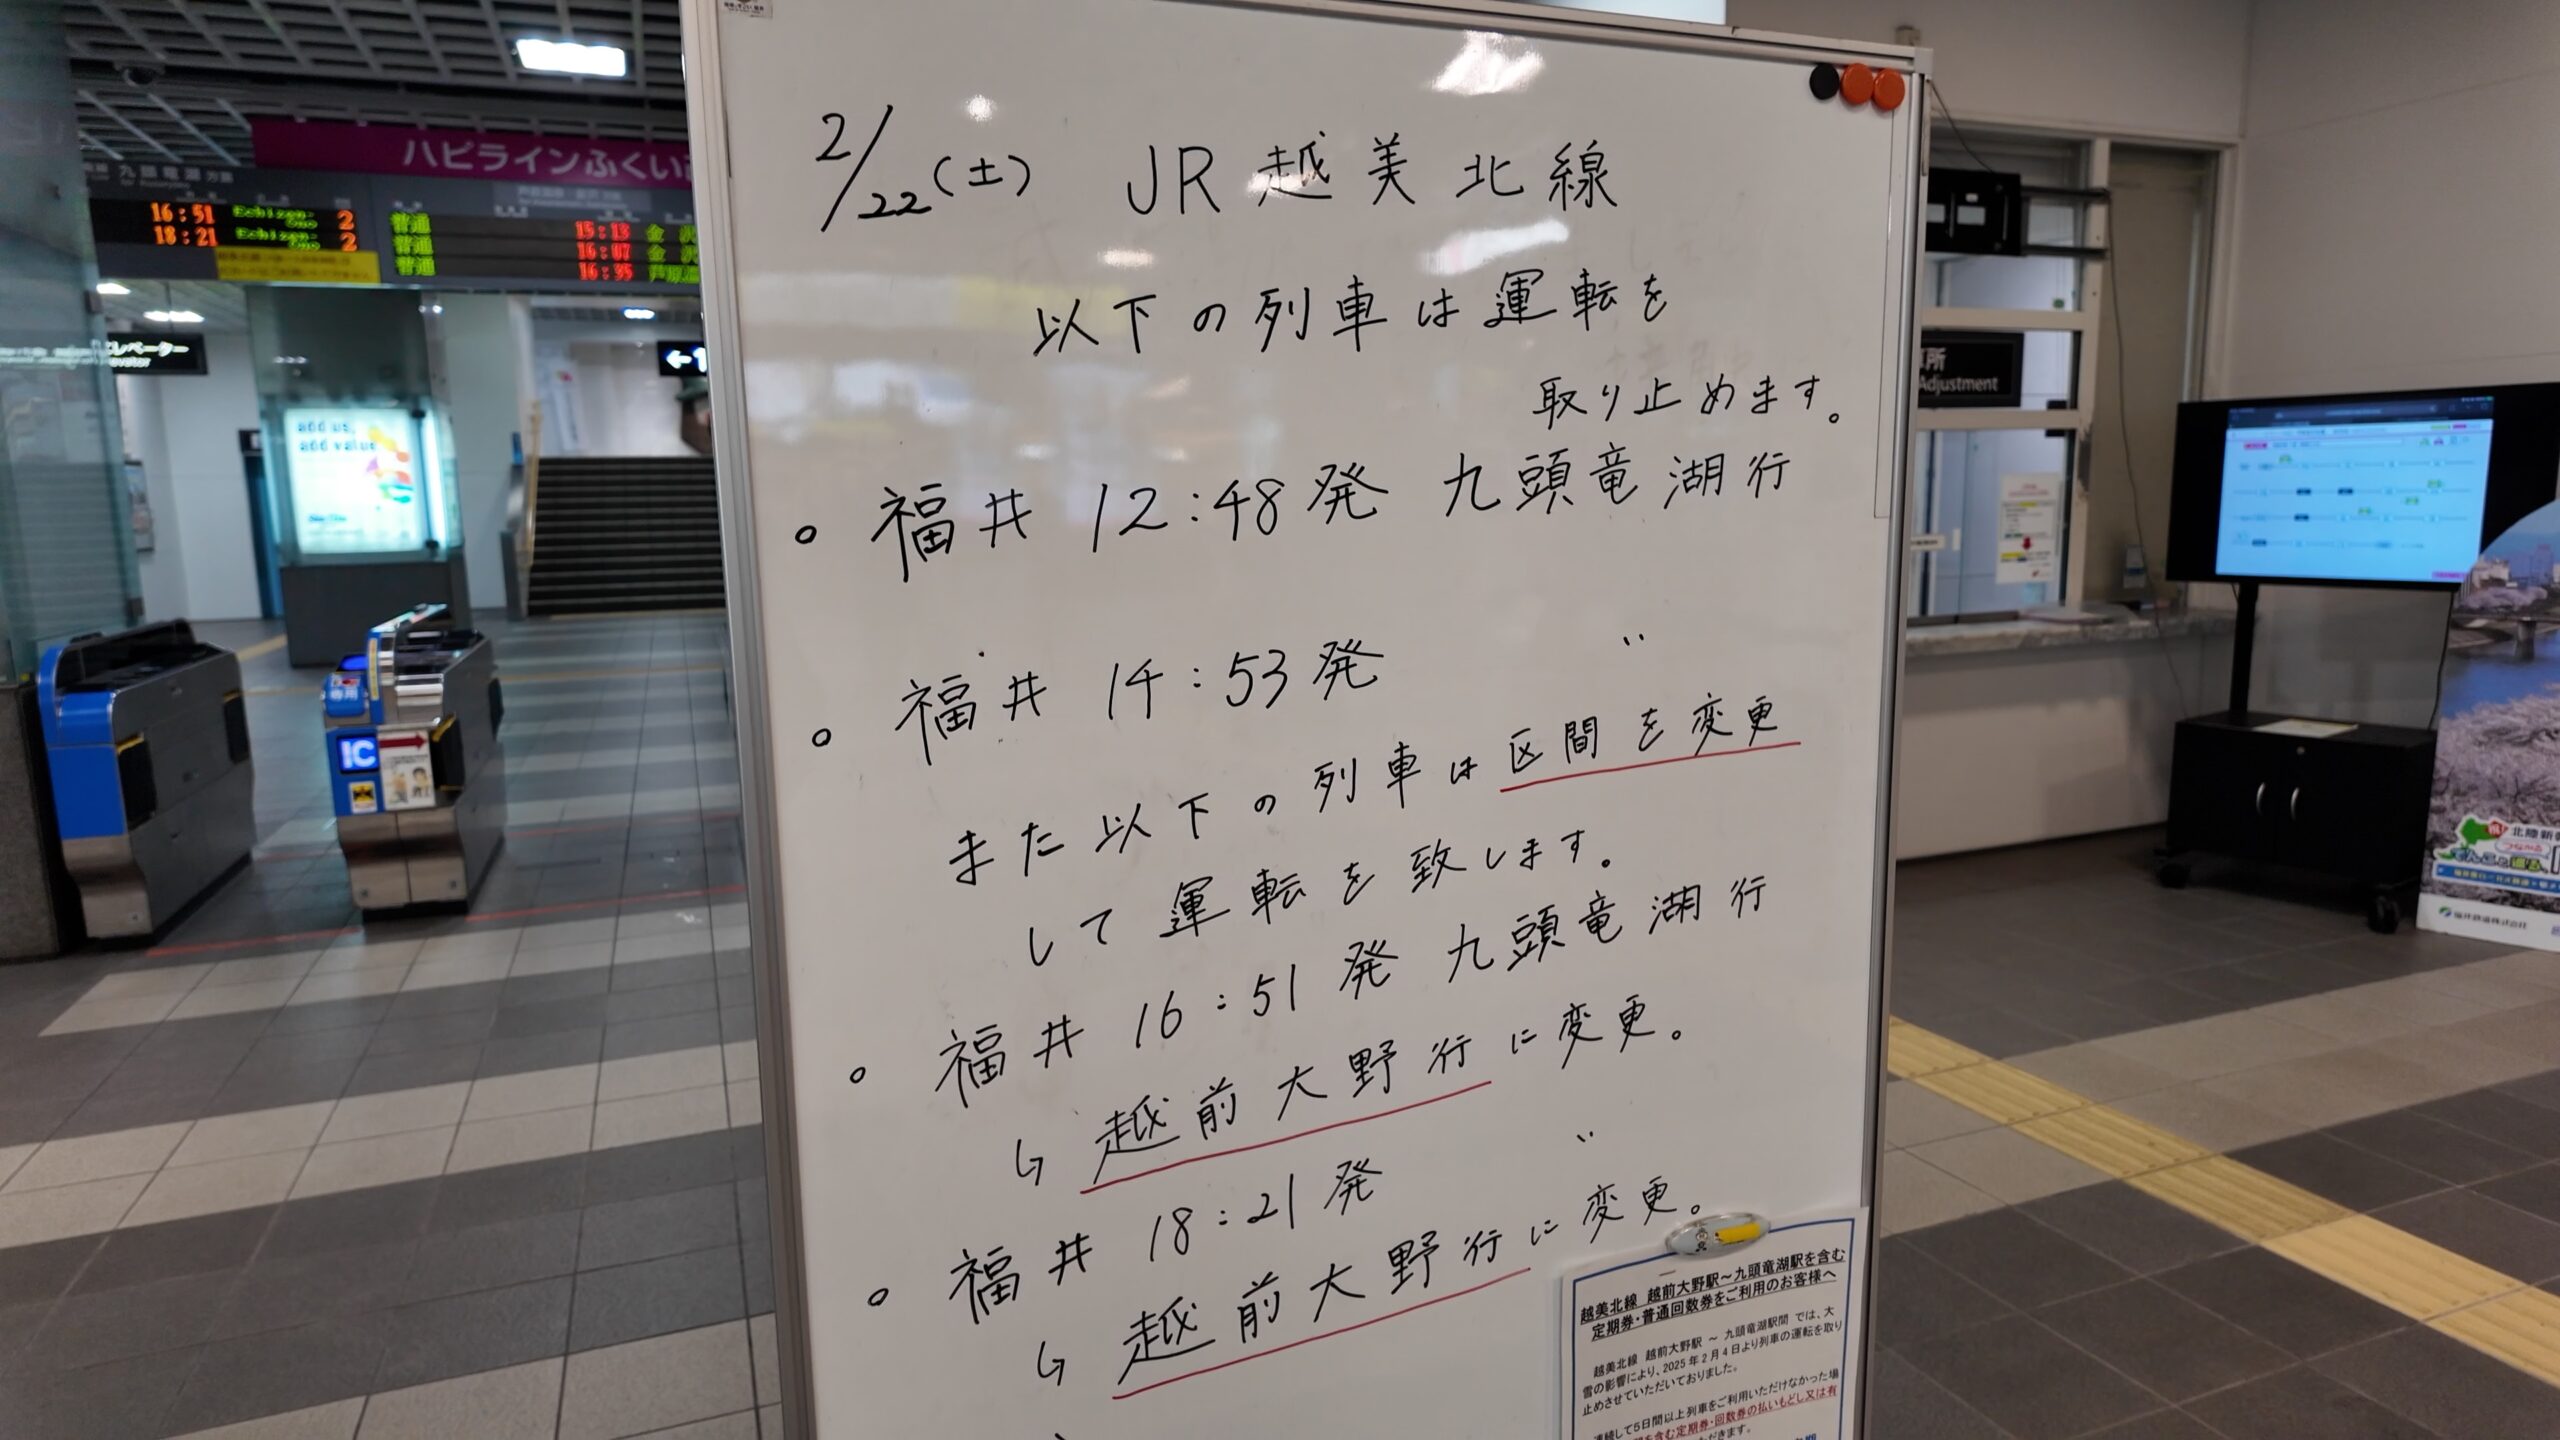 2/22(土) JR越美北線
以下の列車は運転を
取り止めます。
○ 福井 12:48発 九頭竜湖行
○ 福井 14:53発 〃
また以下の列車は区間を変更
して運転を致します。
○ 福井 16:51発 九頭竜湖行
↳ 越前大野行に変更。
○ 福井 18:21発 〃
↳ 越前大野行に変更。
越美北線 越前大野駅~九頭竜湖駅を含む
定期券・普通回数券をご利用のお客様へ
越美北線 越前大野駅 ~ 九頭竜湖駅間 では、大
雪の影響により、2025年2月4日より列車の運転を取り
止めさせていただいておりました。
連続して5日間以上列車をご利用いただけなかった場
を含む定期券・回数券の払いもどし又は有
ハピラインふくい
九頭竜湖 方面
16:51 Echizen-Ono 2
18:21 Echizen-Ono 2
普通 15:13 金沢
普通 16:07 金沢
普通 16:35 芦原温
エレベーター
add us,
add value
IC
専用
Adjustment
北陸新
福井鉄道株式会社